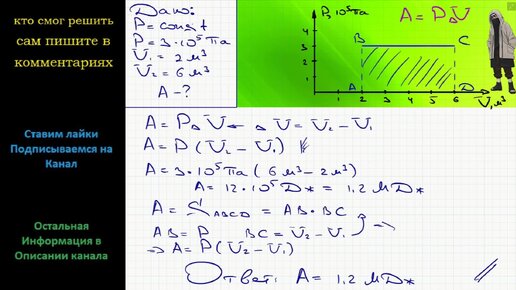 кто смог решить
сам пишите в
комментариях
Ставим лайки
Подписываемся на
Канал
Остальная
Информация в
Описании канала
Дано:
P = const
P = 3·10⁵ Па
V₁ = 2 м³
V₂ = 6 м³
A - ?
P, 10⁵ Па
A = PΔV
4
3
2
1
B C
A D
1 2 3 4 5 6 V, м³
A = PΔV ← ΔV = V₂ - V₁
A = P (V₂ - V₁)
A = 3·10⁵ Па (6 м³ - 2 м³)
A = 12·10⁵ Дж = 1,2 МДж
A = S ABCD = AB·BC
AB = P BC = V₂ - V₁ } =>
=> A = P(V₂ - V₁)
Ответ: A = 1,2 МДж